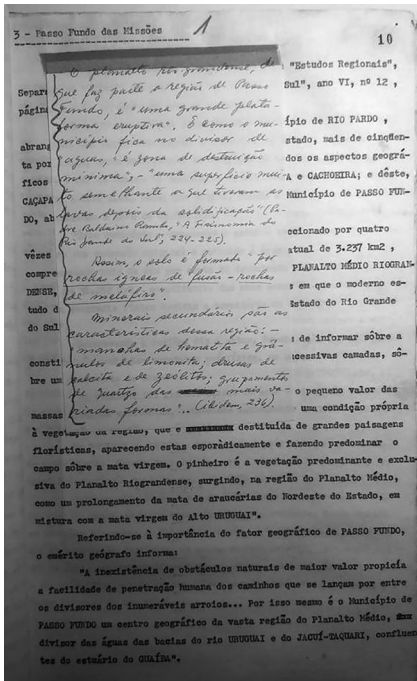 3 - Passo Fundo das Missões
1
10
O planalto rio grandense, de
que faz parte a região de Passo
Fundo, é "uma grande plata-
forma eruptiva". E como o mu-
nicípio fica no divisor de
aguas, "é zona de destruição
mínima", - "uma superfície mui-
to semelhante a que tiveram as
lavas depois da solidificação" (Pa-
dre Balduino Rambo, "A Fisionomia do
Rio Grande do Sul", 224-225).
Assim, o solo é formado "por
rochas ígneas de fusão - rochas
de meláfiro".
Minerais secundários são as
características dessa região: -
manchas de hematita e grâ-
nulos de limonita; drusas de
calcita e de zeólitos; grupamentos
de quartzo das mais va-
riadas formas"... (ibidem, 236)
"Estudos Regionais",
Separ Sul", ano VI, nº 12 ,
página
ípio de RIO PARDO ,
abran stado, mais de cinqüen-
ta por dos os aspectos geográ-
ficos A e CACHOEIRA; e dêste,
CAÇAPA Município de PASSO FUN-
DO, ab
ccionado por quatro
vêzes atual de 3.237 km2 ,
compre PLANALTO MÉDIO RIOGRAN-
DENSE, s em que o moderno es-
tudo d Estado do Rio Grande
do Sul
de informar sôbre a
consti cessivas camadas, sô-
bre um
o pequeno valor das
massas uma condição própria
à vegetação da região, que é destituída de grandes paisagens
florísticas, aparecendo estas esporàdicamente e fazendo predominar o
campo sôbre a mata virgem. O pinheiro é a vegetação predominante e exclu-
siva do Planalto Riograndense, surgindo, na região do Planalto Médio,
como um prolongamento da mata de araucárias do Nordeste do Estado, em
mistura com a mata virgem do Alto URUGUAI".
Referindo-se à importância do fator geográfico de PASSO FUNDO,
o emérito geógrafo informa:
"A inexistência de obstáculos naturais de maior valor propicia
a facilidade de penetração humana dos caminhos que se lançam por entre
os divisores dos inumeráveis arroios... Por isso mesmo é o Município de
PASSO FUNDO um centro geográfico da vasta região do Planalto Médio,
divisor das águas das bacias do rio URUGUAI e do JACUÍ-TAQUARI, confluen
tes do estuário do GUAÍBA".